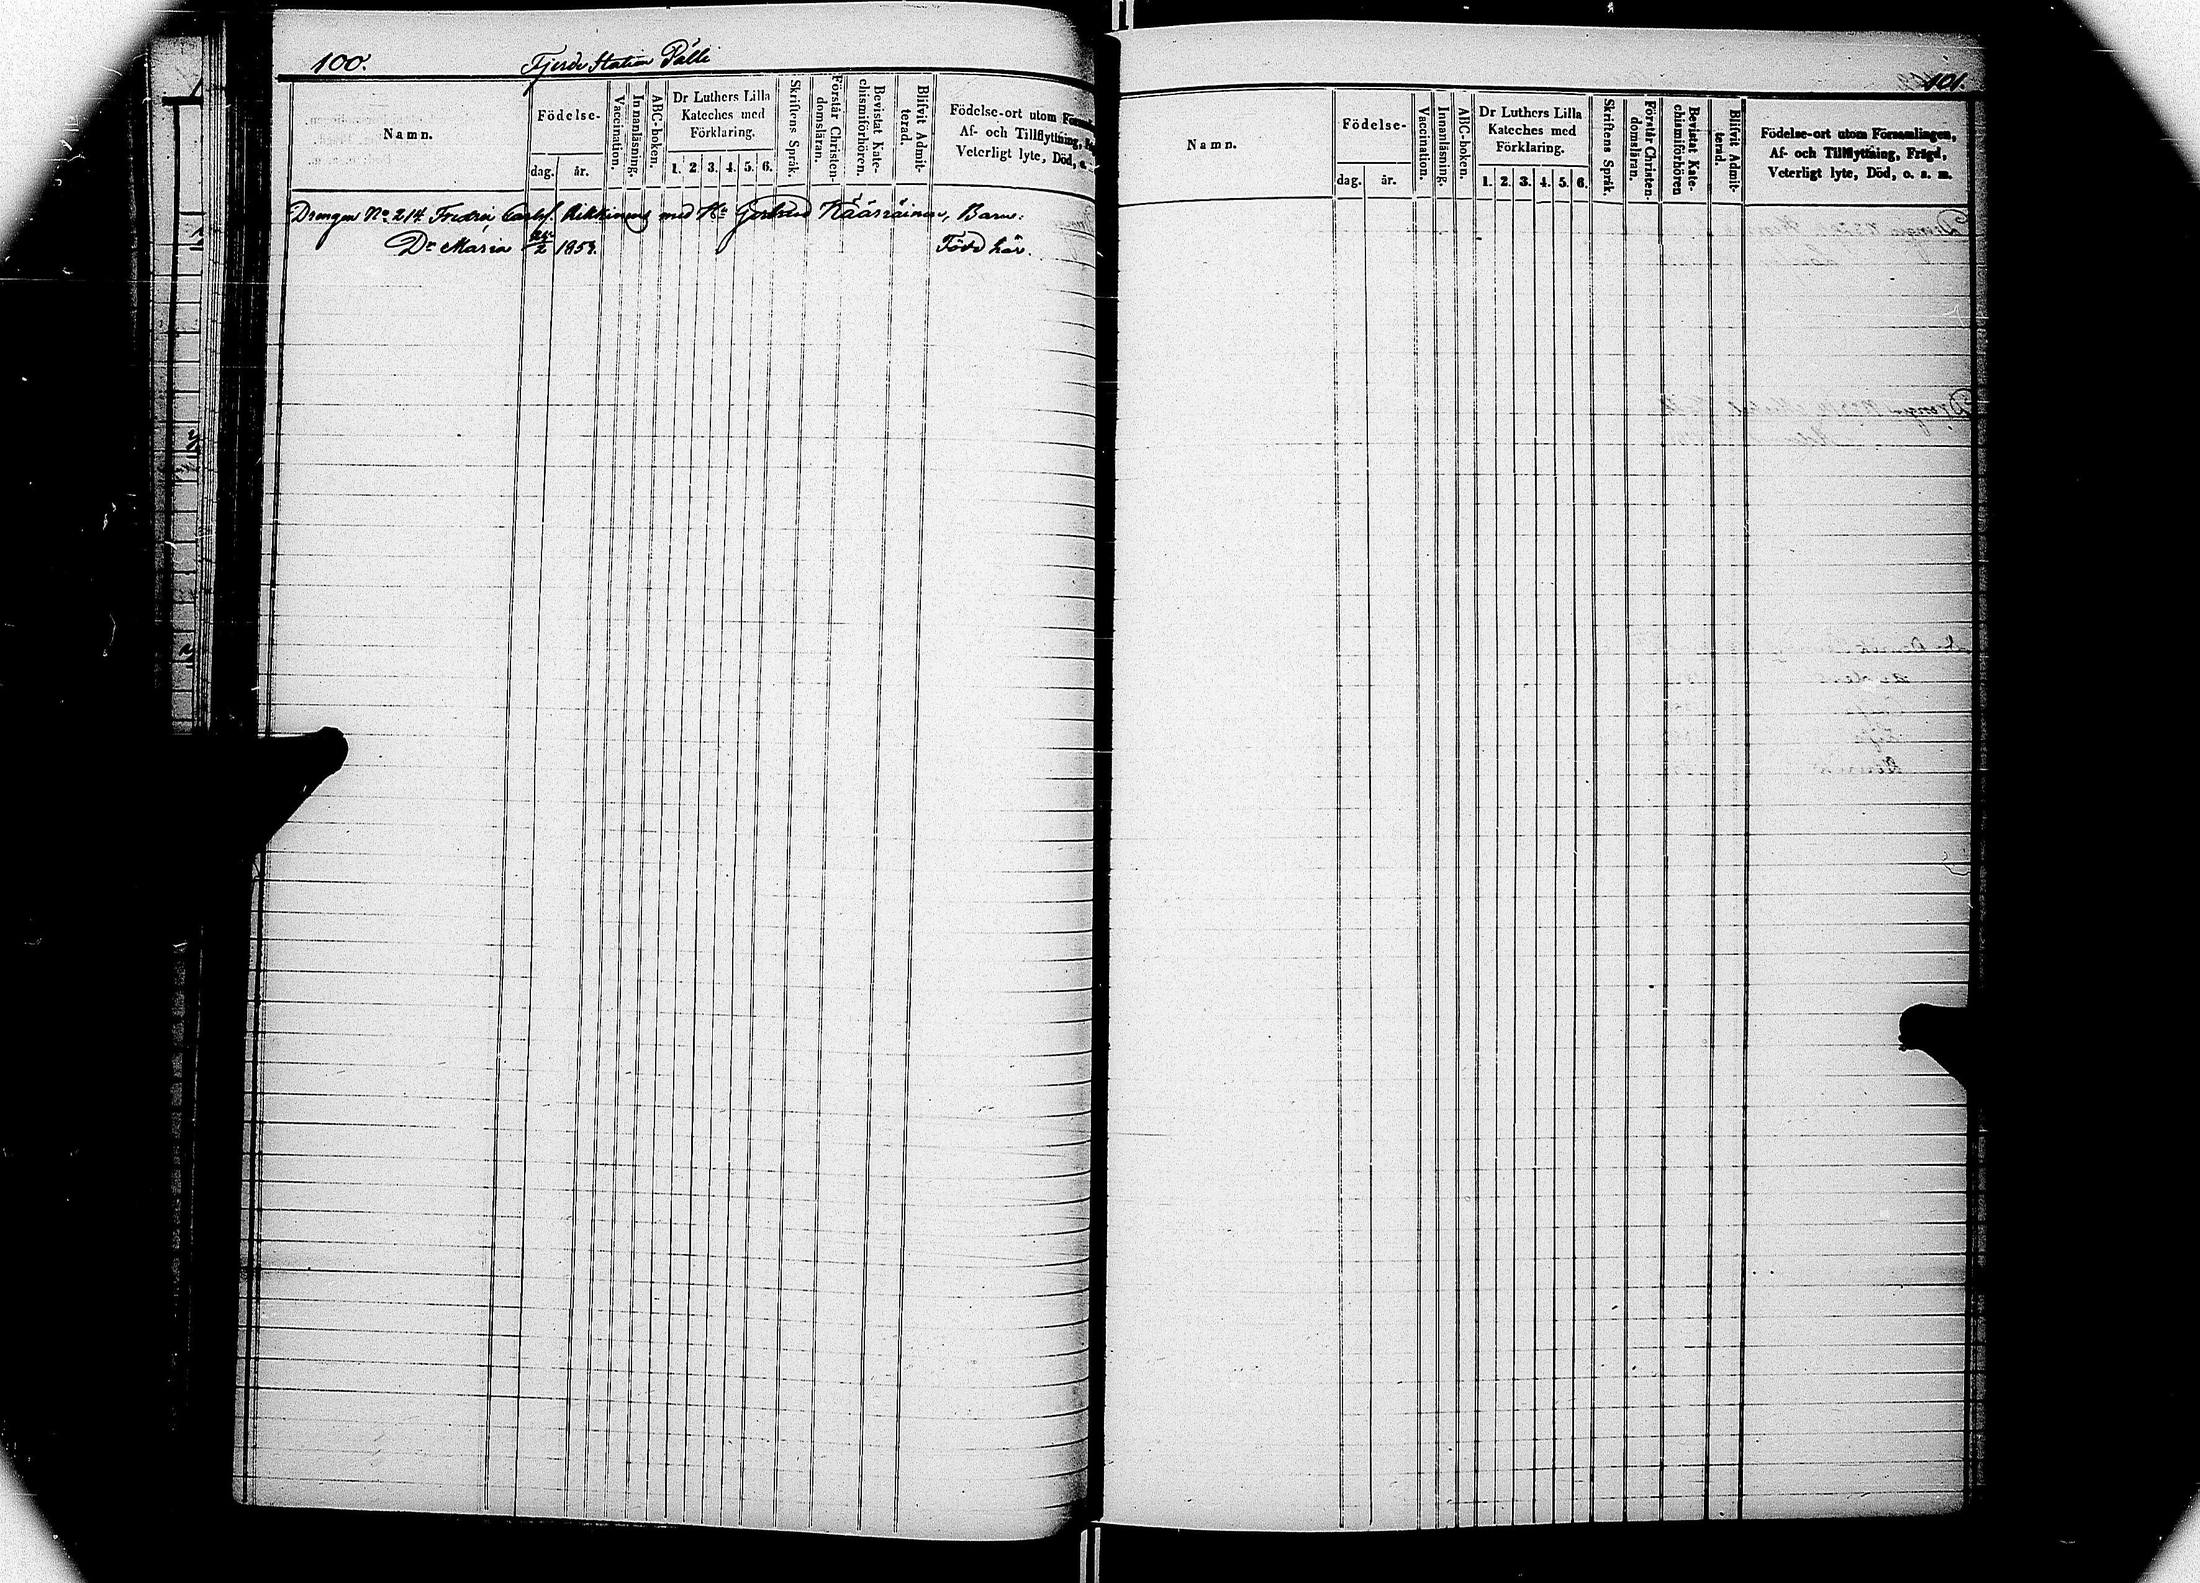 100.
Fjerde Station Pälli
Namn.
Födelse-
dag. år.
Vaccination.
Innanläsning.
ABC-boken.
Dr Luthers Lilla
Kateches med
Förklaring.
1. 2. 3. 4. 5. 6.
Skriftens Språk.
Förstår Christen-
domsläran.
Bevistat Kate-
chismiförhören.
Blifvit Admit-
terad.
Födelse-ort utom
Af- och Tillflyttning,
Veterligt lyte, Död, o.
Drengen No 214 Fredric Carlsf. Rikkinens med Hu Gertrud Käärräinen, Barn:
Dr Maria 2 1858. Född här.
101.
Namn.
Födelse-
dag. år.
Vaccination.
Innanläsning.
ABC-boken.
Dr Luthers Lilla
Kateches med
Förklaring.
1. 2. 3. 4. 5. 6.
Skriftens Språk.
Förstår Christen-
domsläran.
Bevistat Kate-
chismiförhören
Blifvit Admit-
terad.
Födelse-ort utom Församlingen,
Af- och Tillflyttning, Frägd,
Veterligt lyte, Död, o. s. m.